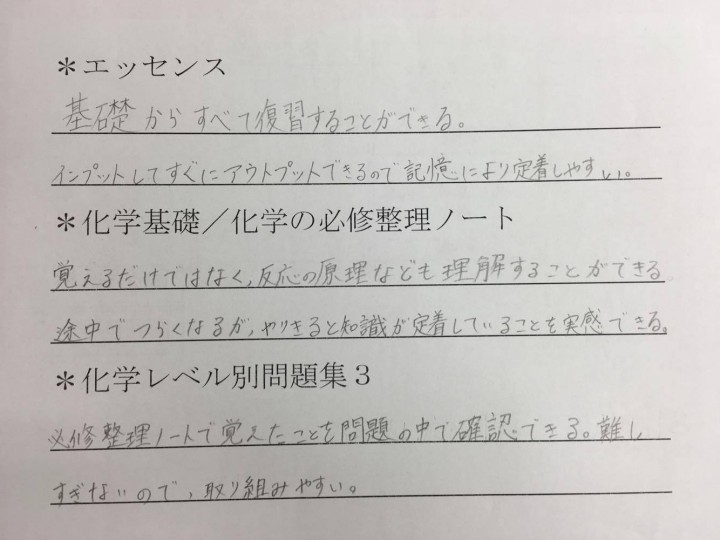 ＊エッセンス
基礎からすべて復習することができる。
インプットしてすぐにアウトプットできるので記憶により定着しやすい。
＊化学基礎／化学の必修整理ノート
覚えるだけではなく、反応の原理なども理解することができる
途中でつらくなるが、やりきると知識が定着していることを実感できる。
＊化学レベル別問題集３
必修整理ノートで覚えたことを問題の中で確認できる。難し
すぎないので、取り組みやすい。